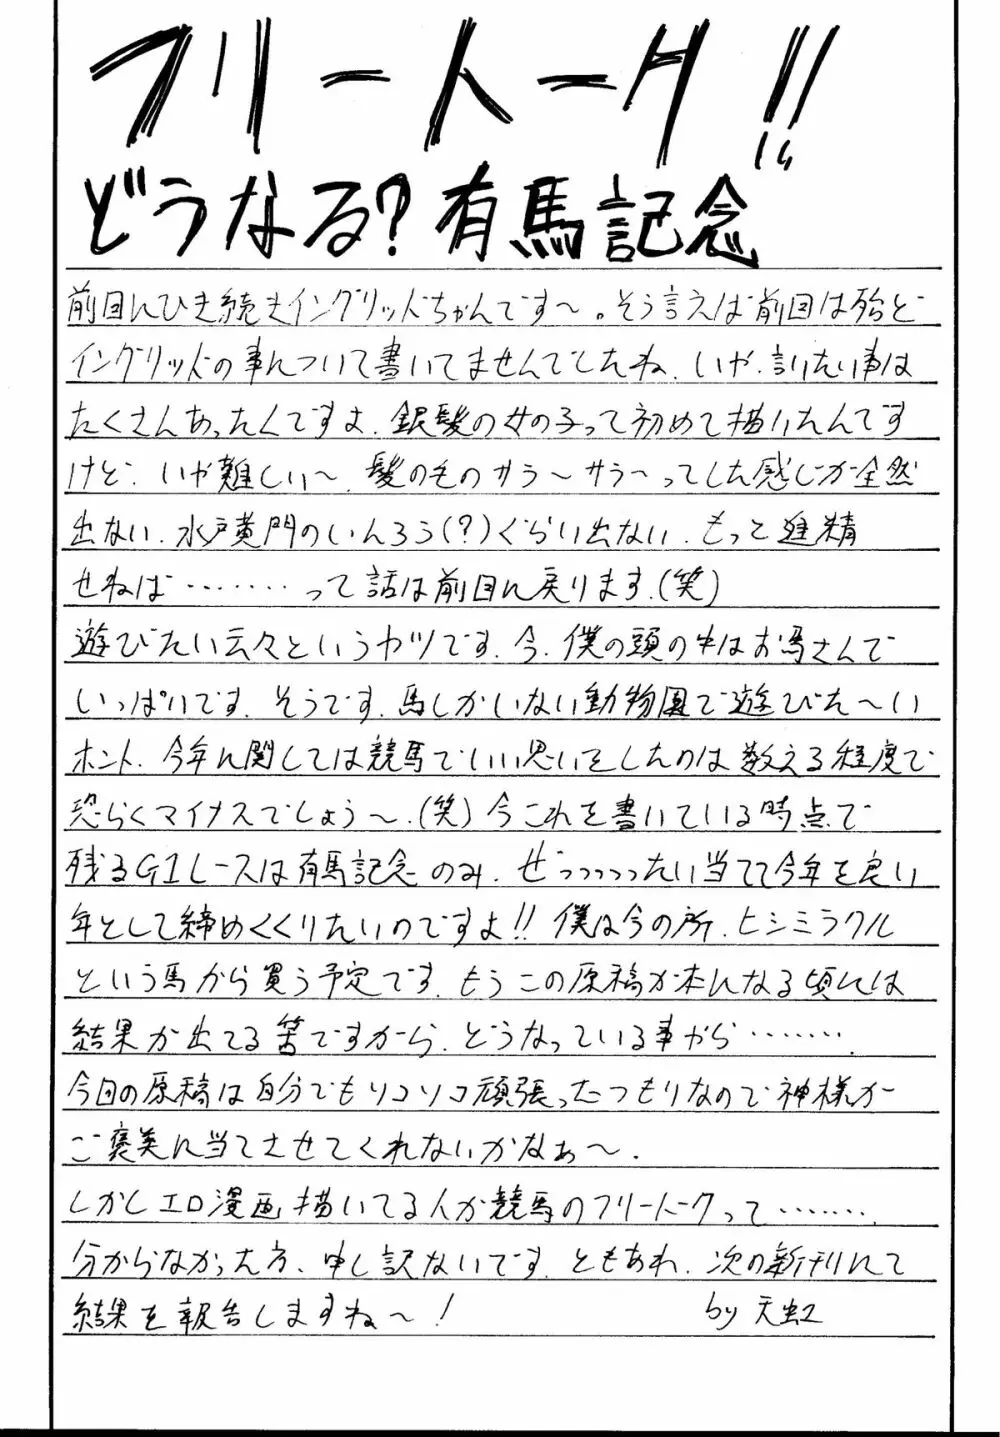 フリートーク!!
どうなる?有馬記念
前回にひき続きイングリッドちゃんです〜。そう言えば前回は殆ど
イングリッドの事について書いてませんでしたね、いや、言いたい事は
たくさんあったんですよ、銀髪の女の子って初めて描いたんです
けど、いや難しい〜、髪の毛のサラ〜サラ〜ってした感じが全然
出ない、水戸黄門のいんろう(?)ぐらい出ない、もっと進精
せねば………って話は前回に戻ります、(笑)
遊びたい云々というヤツです、今、僕の頭の中はお馬さんで
いっぱいです、そうです、馬しかいない動物園で遊びた〜い
ホント、今年に関しては競馬でいい思いをしたのは数える程度で
恐らくマイナスでしょう〜、(笑)今これを書いている時点で
残るG1レースは有馬記念のみ、ぜっっっったい当てて今年を良い
年として締めくくりたいのですよ!!僕は今の所、ヒシミラクル
という馬から買う予定です、もうこの原稿が本になる頃には
結果が出てる筈ですから、どうなっている事やら………
今回の原稿は自分でもソコソコ頑張ったつもりなので神様が
ご褒美に当てさせてくれないかなぁ〜、
しかしエロ漫画描いてる人が競馬のフリートークって………
分からなかった方、申し訳ないです、ともあれ、次の新刊にて
結果を報告しますね〜!
by 天虹